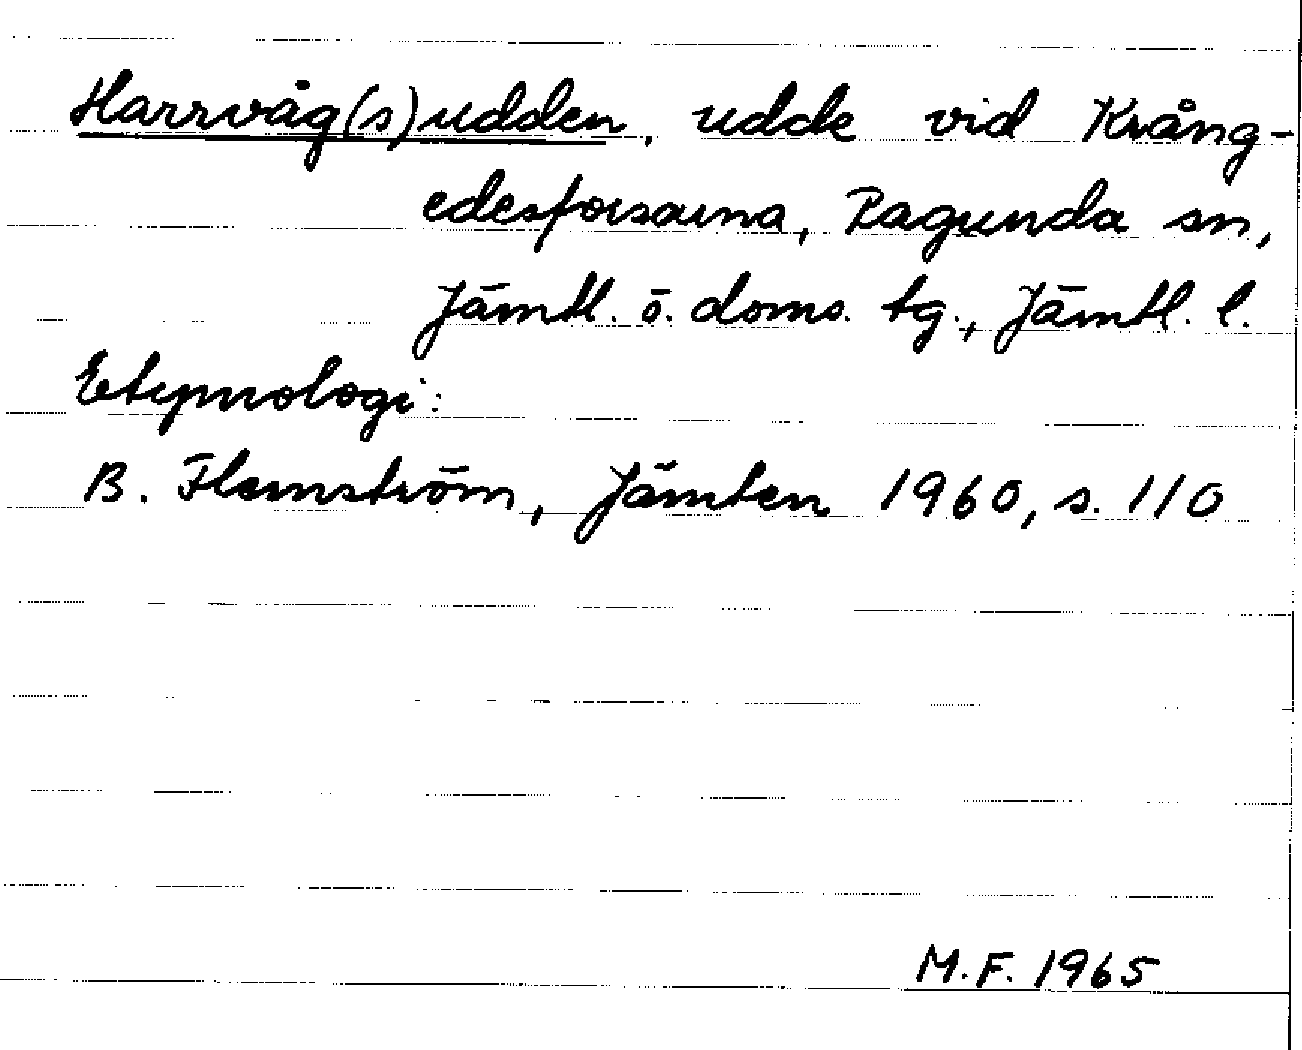 Harrvåg(s)udden, udde vid Krång-
edesforsarna, Ragunda sn,
Jämtl. ö. doms. tg., Jämtl. l.
Etymologi:
B. Flemström, Jämten 1960, s. 110
M.F. 1965